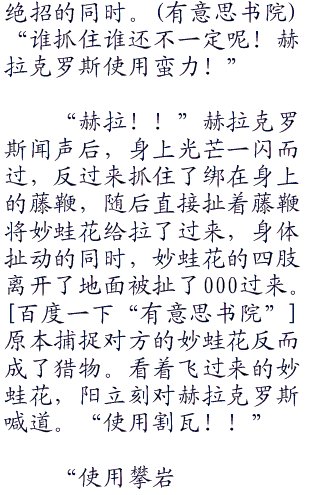 绝招的同时。(有意思书院)
“谁抓住谁还不一定呢！赫
拉克罗斯使用蛮力！”
“赫拉！！”赫拉克罗
斯闻声后，身上光芒一闪而
过，反过来抓住了绑在身上
的藤鞭，随后直接扯着藤鞭
将妙蛙花给拉了过来，身体
扯动的同时，妙蛙花的四肢
离开了地面被扯了000过来。
[百度一下“有意思书院”]
原本捕捉对方的妙蛙花反而
成了猎物。看着飞过来的妙
蛙花，阳立刻对赫拉克罗斯
喊道。“使用割瓦！！”
“使用攀岩